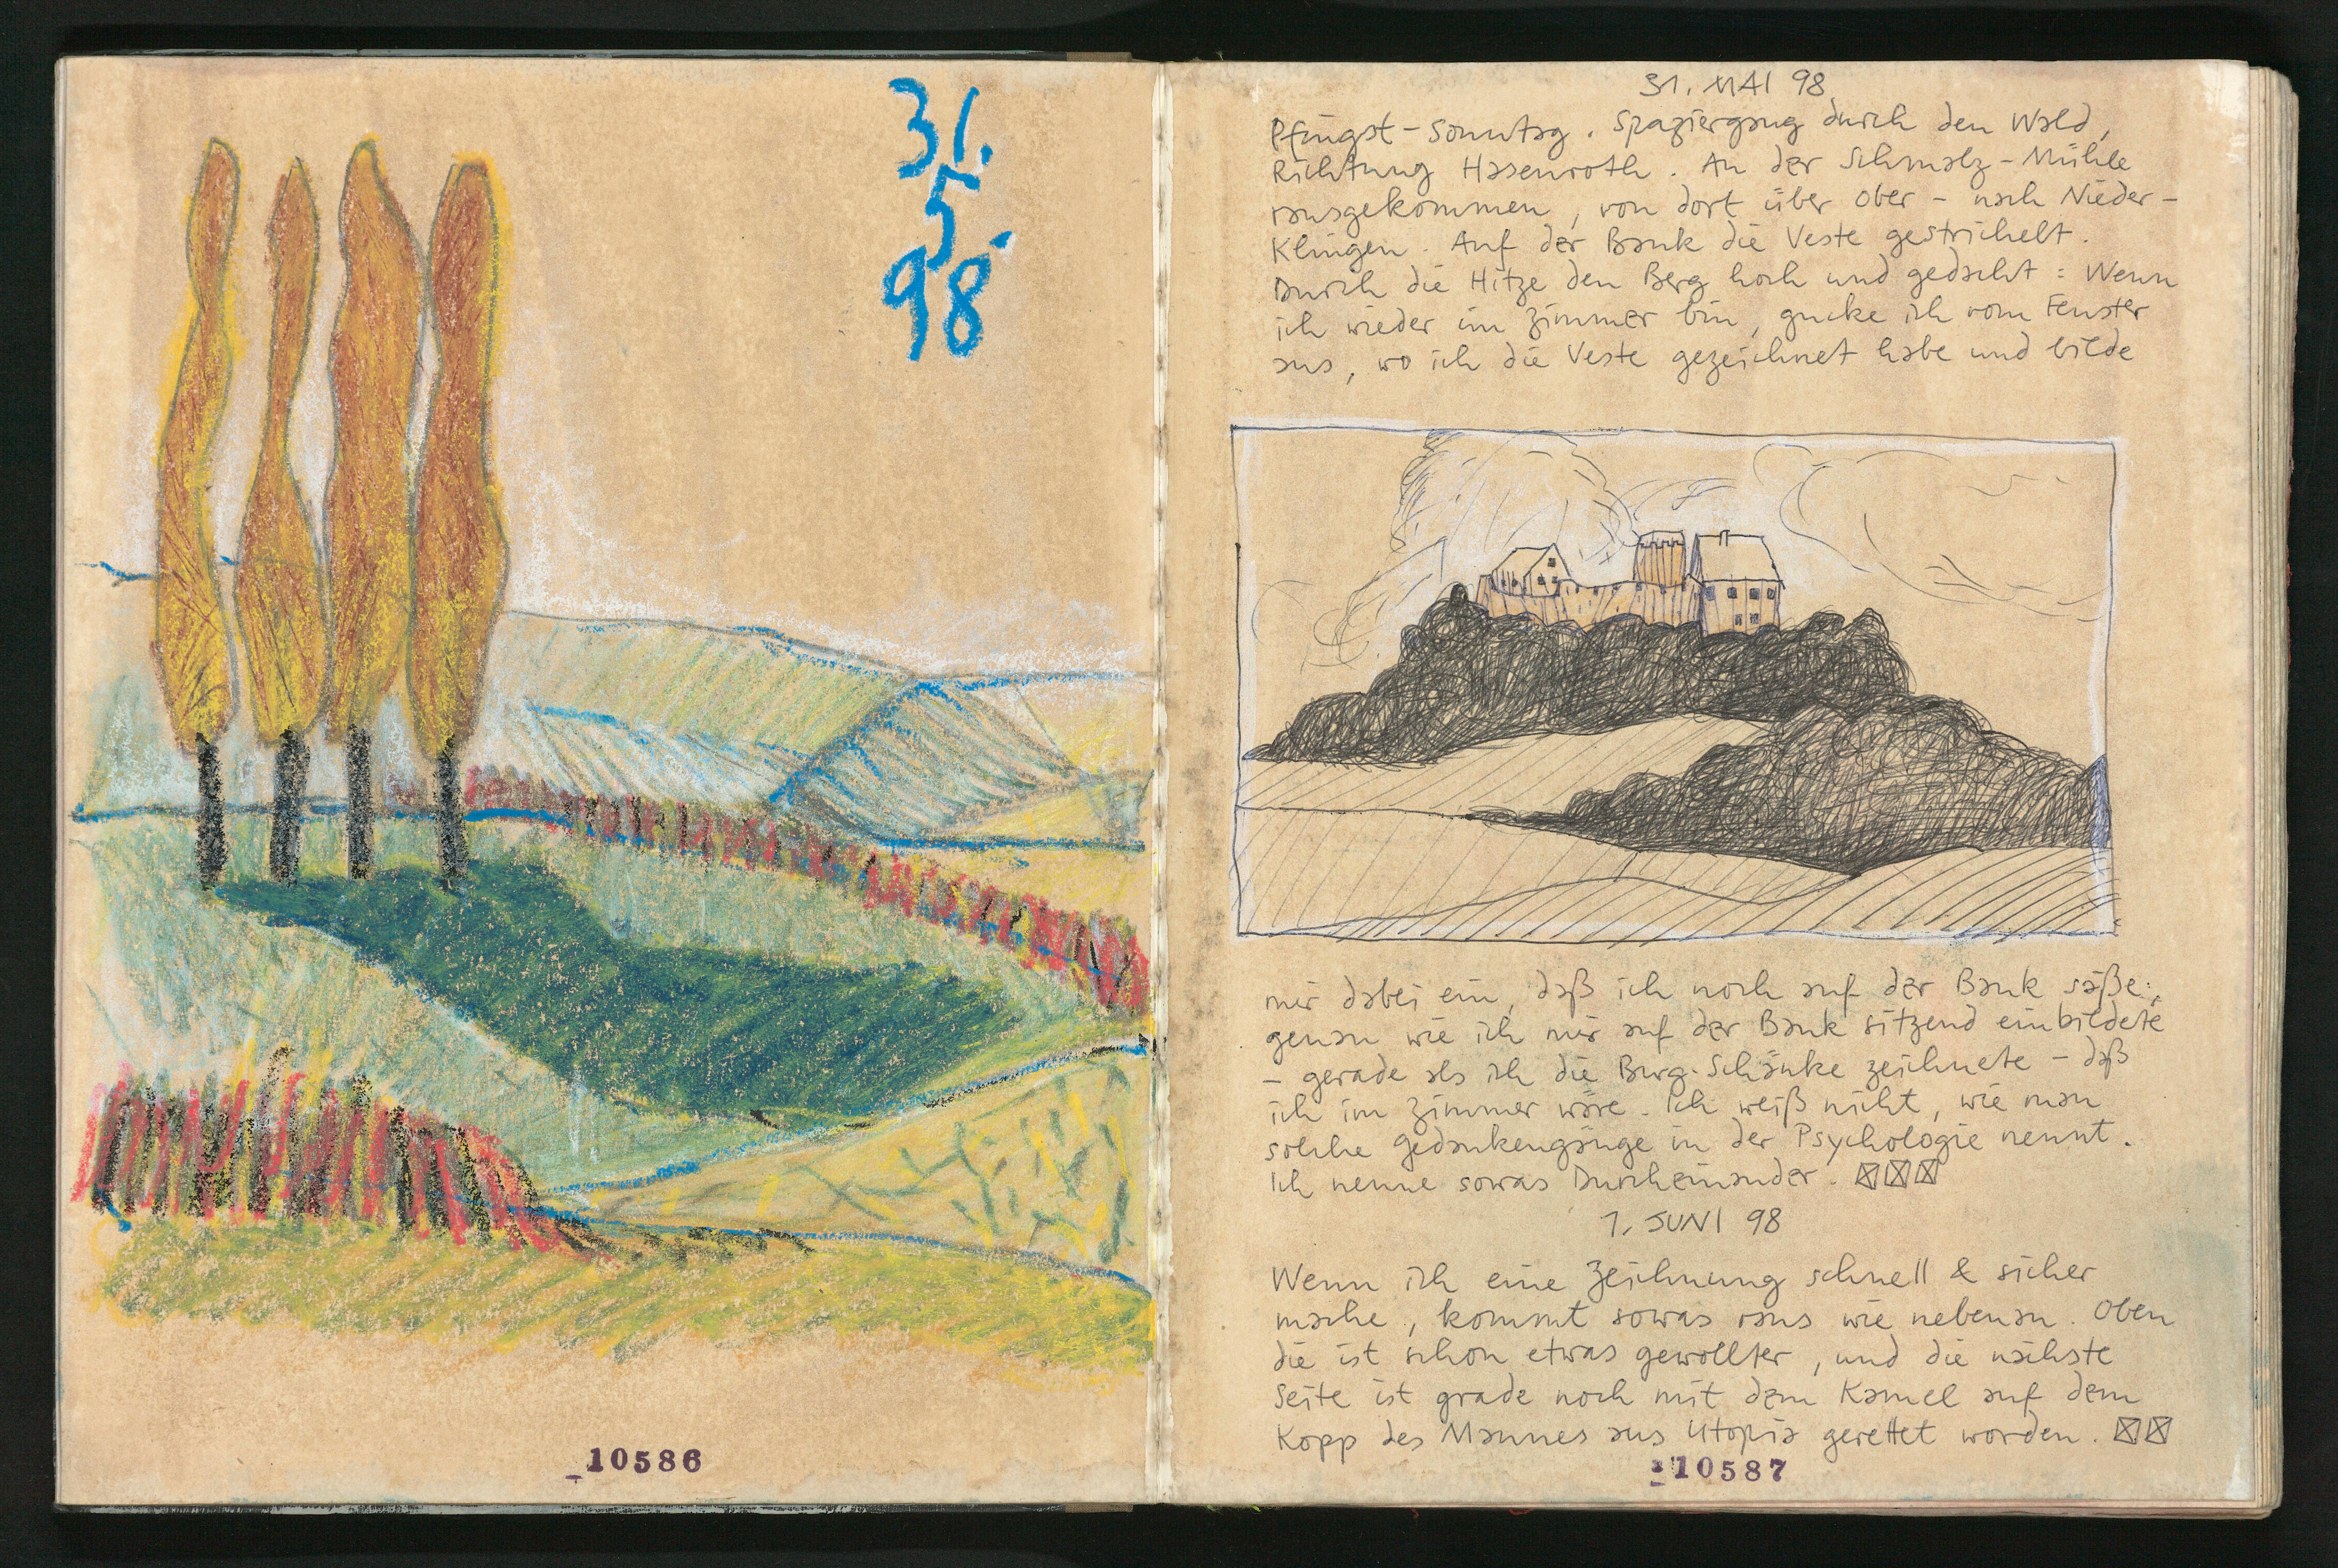 31.
5.
98
10586
31. MAI 98
Pfingst-Sonntag. Spaziergang durch den Wald,
Richtung Hasenroth. An der Schmelz-Mühle
rausgekommen, von dort über Ober- nach Nieder-
Klingen. Auf der Bank die Veste gestrichelt.
Durch die Hitze den Berg hoch und gedacht: Wenn
ich wieder im Zimmer bin, gucke ich vom Fenster
aus, wo ich die Veste gezeichnet habe und bilde
mir dabei ein, daß ich noch auf der Bank säße;
genau wie ich mir auf der Bank sitzend einbildete
- gerade als ich die Burg-Schänke zeichnete - daß
ich im Zimmer wäre. Ich weiß nicht, wie man
solche Gedankengänge in der Psychologie nennt.
Ich nenne sowas Durcheinander.
1. JUNI 98
Wenn ich eine Zeichnung schnell & sicher
mache, kommt sowas raus wie nebenan. Oben
die ist schon etwas gewollter, und die nächste
Seite ist grade noch mit dem Kamel auf dem
Kopp des Mannes aus Utopia gerettet worden.
10587